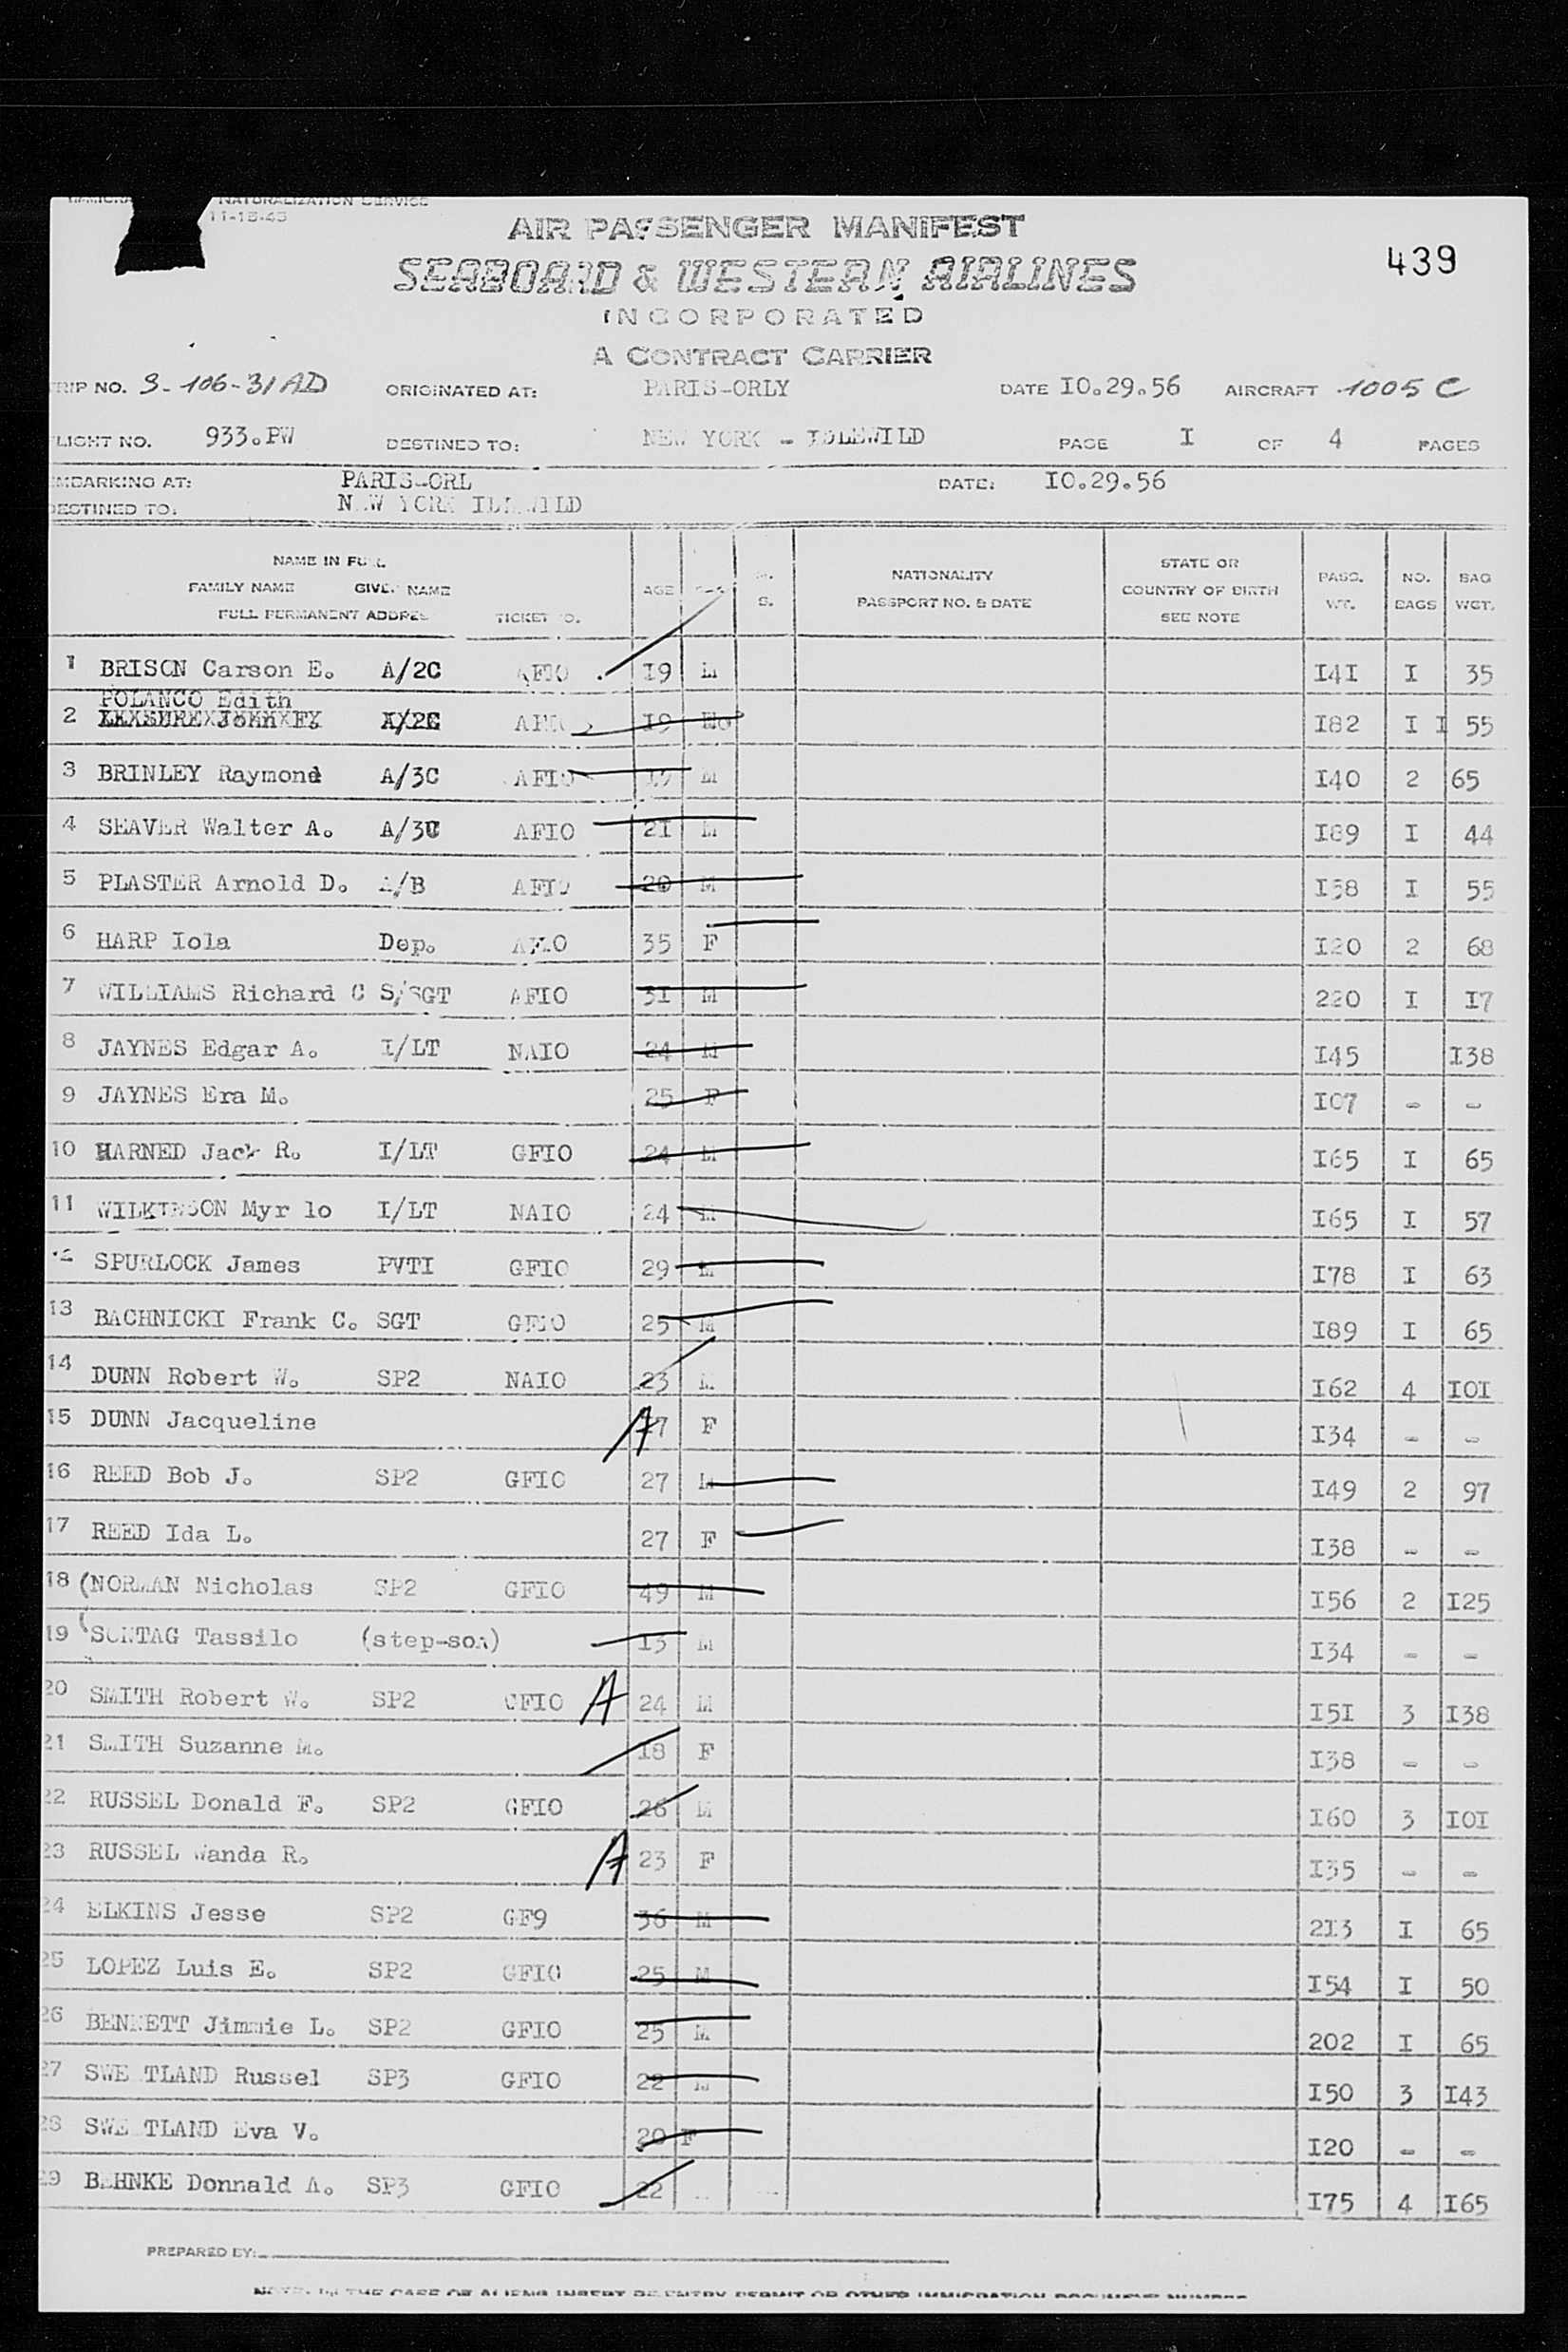 NATURALIZATION SERVICE
11-15-43
AIR PASSENGER MANIFEST
439
SEABOARD & WESTERN AIRLINES
INCORPORATED
A CONTRACT CARRIER
RIP NO. S-106-31AD ORIGINATED AT: PARIS-ORLY DATE IO.29.56 AIRCRAFT 1005 C
LIGHT NO. 933.PW DESTINED TO: NEW YORK - IDLEWILD PAGE I OF 4 PAGES
MBARKING AT: PARIS-ORL DATE: IO.29.56
DESTINED TO: NEW YORK IDLEWILD
NAME IN FULL
FAMILY NAME GIVEN NAME
FULL PERMANENT ADDRESS TICKET NO.
AGE
M. S.
NATIONALITY
PASSPORT NO. & DATE
STATE OR
COUNTRY OF BIRTH
SEE NOTE
PASS. WT.
NO. BAGS
BAG WGT.
1 BRISON Carson E. A/2C AFIO I9 M I4I I 35
POLANCO Edith
2 A/2C AFIO I9 I82 I I 55
3 BRINLEY Raymond A/3C AFIO M I40 2 65
4 SEAVER Walter A. A/3C AFIO 2I M I89 I 44
5 PLASTER Arnold D. A/B AFIO 20 M I58 I 55
6 HARP Iola Dep. AFIO 35 F I20 2 68
7 WILLIAMS Richard C S/SGT AFIO 3I M 220 I I7
8 JAYNES Edgar A. I/LT NAIO 24 M I45 I38
9 JAYNES Era M. 25 F I07 - -
10 HARNED Jack R. I/LT GFIO 24 M I65 I 65
11 WILKINSON Myr lo I/LT NAIO 24 M I65 I 57
12 SPURLOCK James PVTI GFIO 29 M I78 I 63
13 BACHNICKI Frank C. SGT GFIO 25 M I89 I 65
14 DUNN Robert W. SP2 NAIO 23 M I62 4 IOI
15 DUNN Jacqueline A 7 F I34 - -
16 REED Bob J. SP2 GFIO 27 M I49 2 97
17 REED Ida L. 27 F I38 - -
18 (NORMAN Nicholas SP2 GFIO 49 M I56 2 I25
19 (SONTAG Tassilo (step-son) I3 M I34 - -
20 SMITH Robert W. SP2 GFIO A 24 M I5I 3 I38
21 SMITH Suzanne M. I8 F I38 - -
22 RUSSEL Donald F. SP2 GFIO 26 M I60 3 IOI
23 RUSSEL Wanda R. A 23 F I35 - -
24 ELKINS Jesse SP2 GF9 36 M 2I3 I 65
25 LOPEZ Luis E. SP2 GFIO 25 M I54 I 50
26 BENNETT Jimmie L. SP2 GFIO 25 M 202 I 65
27 SWE TLAND Russel SP3 GFIO 22 M I50 3 I43
28 SWE TLAND Eva V. 20 F I20 - -
29 BEHNKE Donnald A. SP3 GFIO 22 I75 4 I65
PREPARED BY:
NOTE: IN THE CASE OF ALIENS INSERT RE-ENTRY PERMIT OR OTHER IMMIGRATION DOCUMENT NUMBER